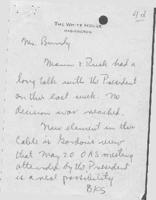 THE WHITE HOUSE
WASHINGTON
Mr. Bundy
Mann & Rusk had a
long talk with the President
on this last week. No
decision was reached.
New element in this
Cable is Gordon's view
that May 20 OAS meeting
attended by the President
is a real possibility
BKS